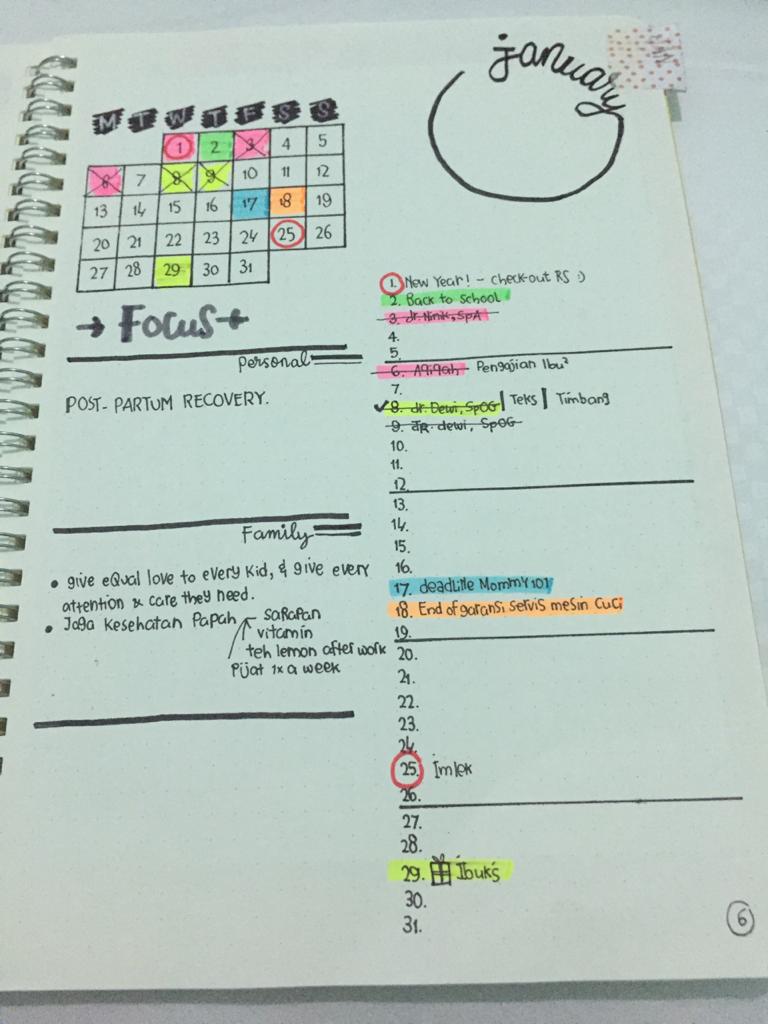 january
M T W T F S S
1 2 3 4 5
6 7 8 9 10 11 12
13 14 15 16 17 18 19
20 21 22 23 24 25 26
27 28 29 30 31
Focus
Personal
POST-PARTUM RECOVERY.
Family
• give equal love to every kid, & give every
attention & care they need.
• Jaga kesehatan Papah
sarapan
vitamin
teh lemon after work
Pijat 1x a week
1. New Year! - check-out RS :)
2. Back to school
3. dr. Ninik, SpA
4.
5.
6. Aqiqah Pengajian Ibu²
7.
8. dr. Dewi, SpOG | Teks | Timbang
9. dr. dewi, SpOG
10.
11.
12.
13.
14.
15.
16.
17. deadline Mommy 101
18. End of garansi servis mesin cuci
19.
20.
21.
22.
23.
24.
25. Imlek
26.
27.
28.
29. Ibuk's
30.
31.
6